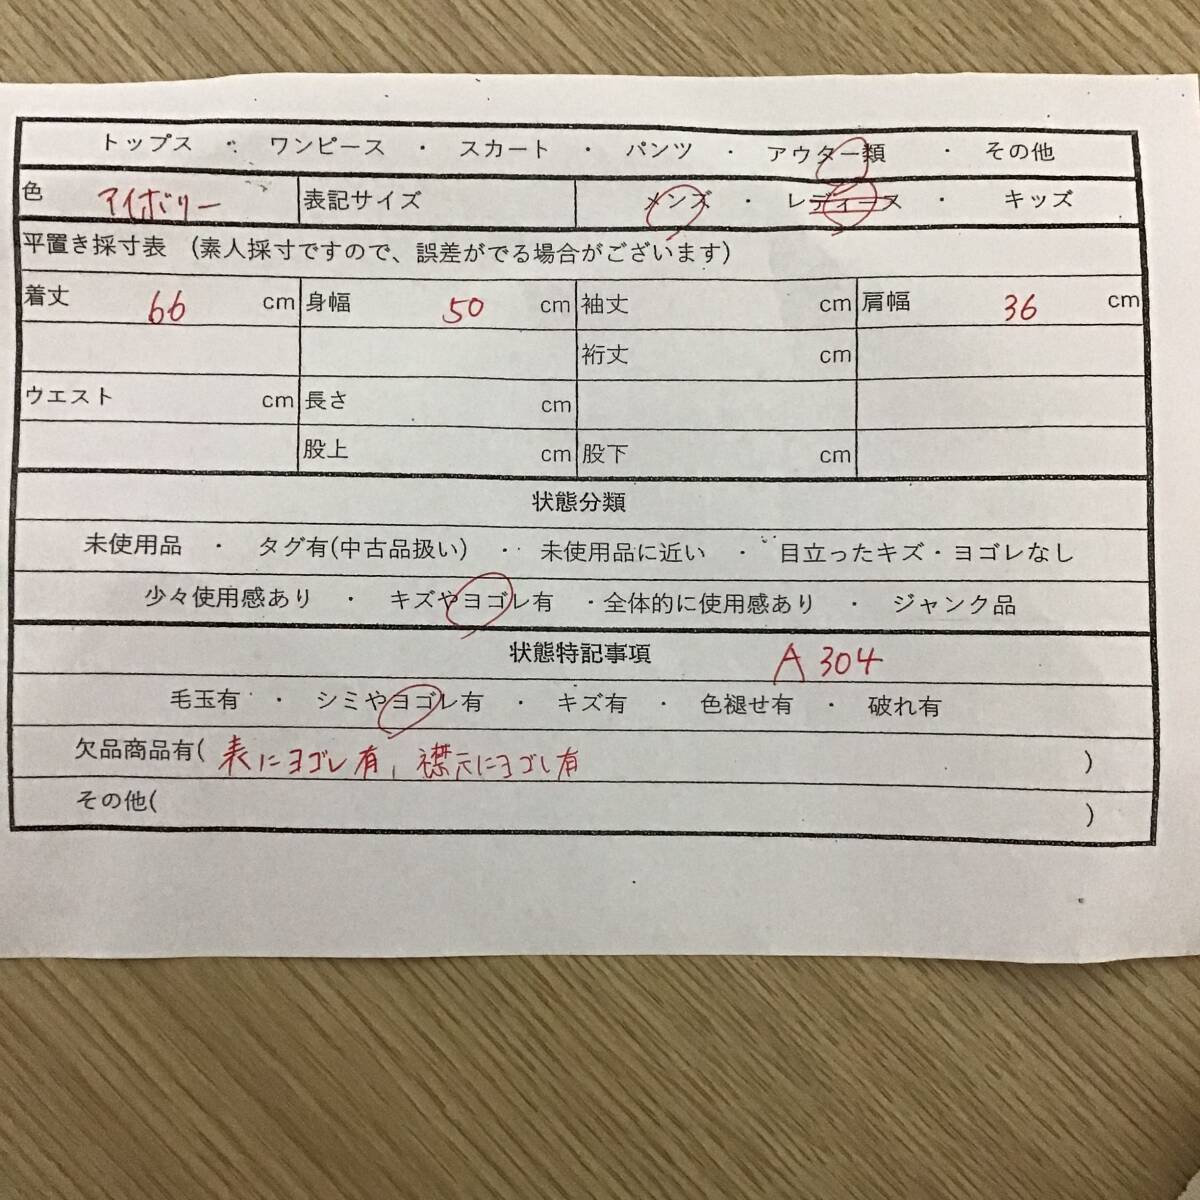 トップス ・ ワンピース ・ スカート ・ パンツ ・ アウター類 ・ その他
色 アイボリー 表記サイズ メンズ ・ レディース ・ キッズ
平置き採寸表 (素人採寸ですので、誤差がでる場合がございます)
着丈 66 cm 身幅 50 cm 袖丈 cm 肩幅 36 cm
裄丈 cm
ウエスト cm 長さ cm
股上 cm 股下 cm
状態分類
未使用品 ・ タグ有(中古品扱い) ・ 未使用品に近い ・ 目立ったキズ・ヨゴレなし
少々使用感あり ・ キズやヨゴレ有 ・全体的に使用感あり ・ ジャンク品
状態特記事項 A304
毛玉有 ・ シミやヨゴレ有 ・ キズ有 ・ 色褪せ有 ・ 破れ有
欠品商品有( 表にヨゴレ有、襟元にヨゴレ有 )
その他( )